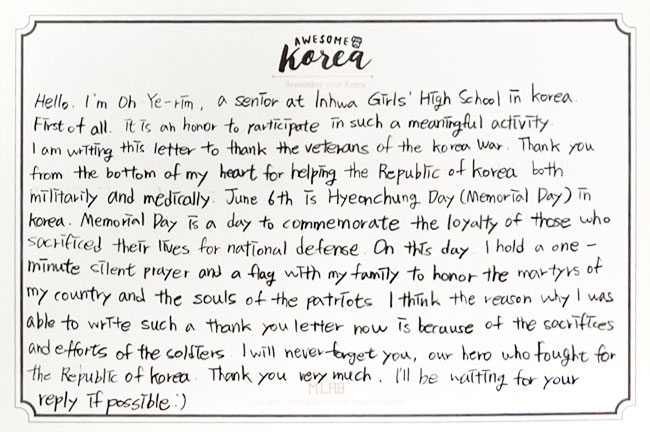 AWESOME
Korea
Remember your Korea
Hello. I'm Oh Ye-rim, a senior at Inhwa Girls' High School in korea.
First of all. it is an honor to participate in such a meaningful activity.
I am writing this letter to thank the veterans of the korea war. Thank you
from the bottom of my heart for helping the Republic of korea both
militarily and medically. June 6th is Hyeonchung Day (Memorial Day) in
korea. Memorial Day is a day to commemorate the loyalty of those who
sacrificed their lives for national defense. On this day. I hold a one-
minute silent prayer and a flag with my family to honor the martyrs of
my country and the souls of the patriots. I think the reason why I was
able to write such a thank you letter now is because of the sacrifices
and efforts of the soldiers. I will never forget you, our hero who fought for
the Republic of korea. Thank you very much. I'll be waiting for your
MLAB
reply if possible :)